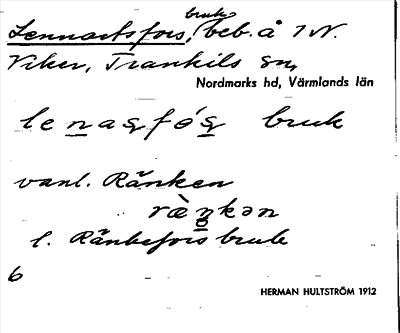 Lennartsfors, bruk, beb. å 1 N.
Viker, Trankils sn,
Nordmarks hd, Värmlands län
lenasfǿs bruk
vanl. Ränken
ræ̀ŋkən
l. Ränkefors bruk
6
HERMAN HULTSTRÖM 1912